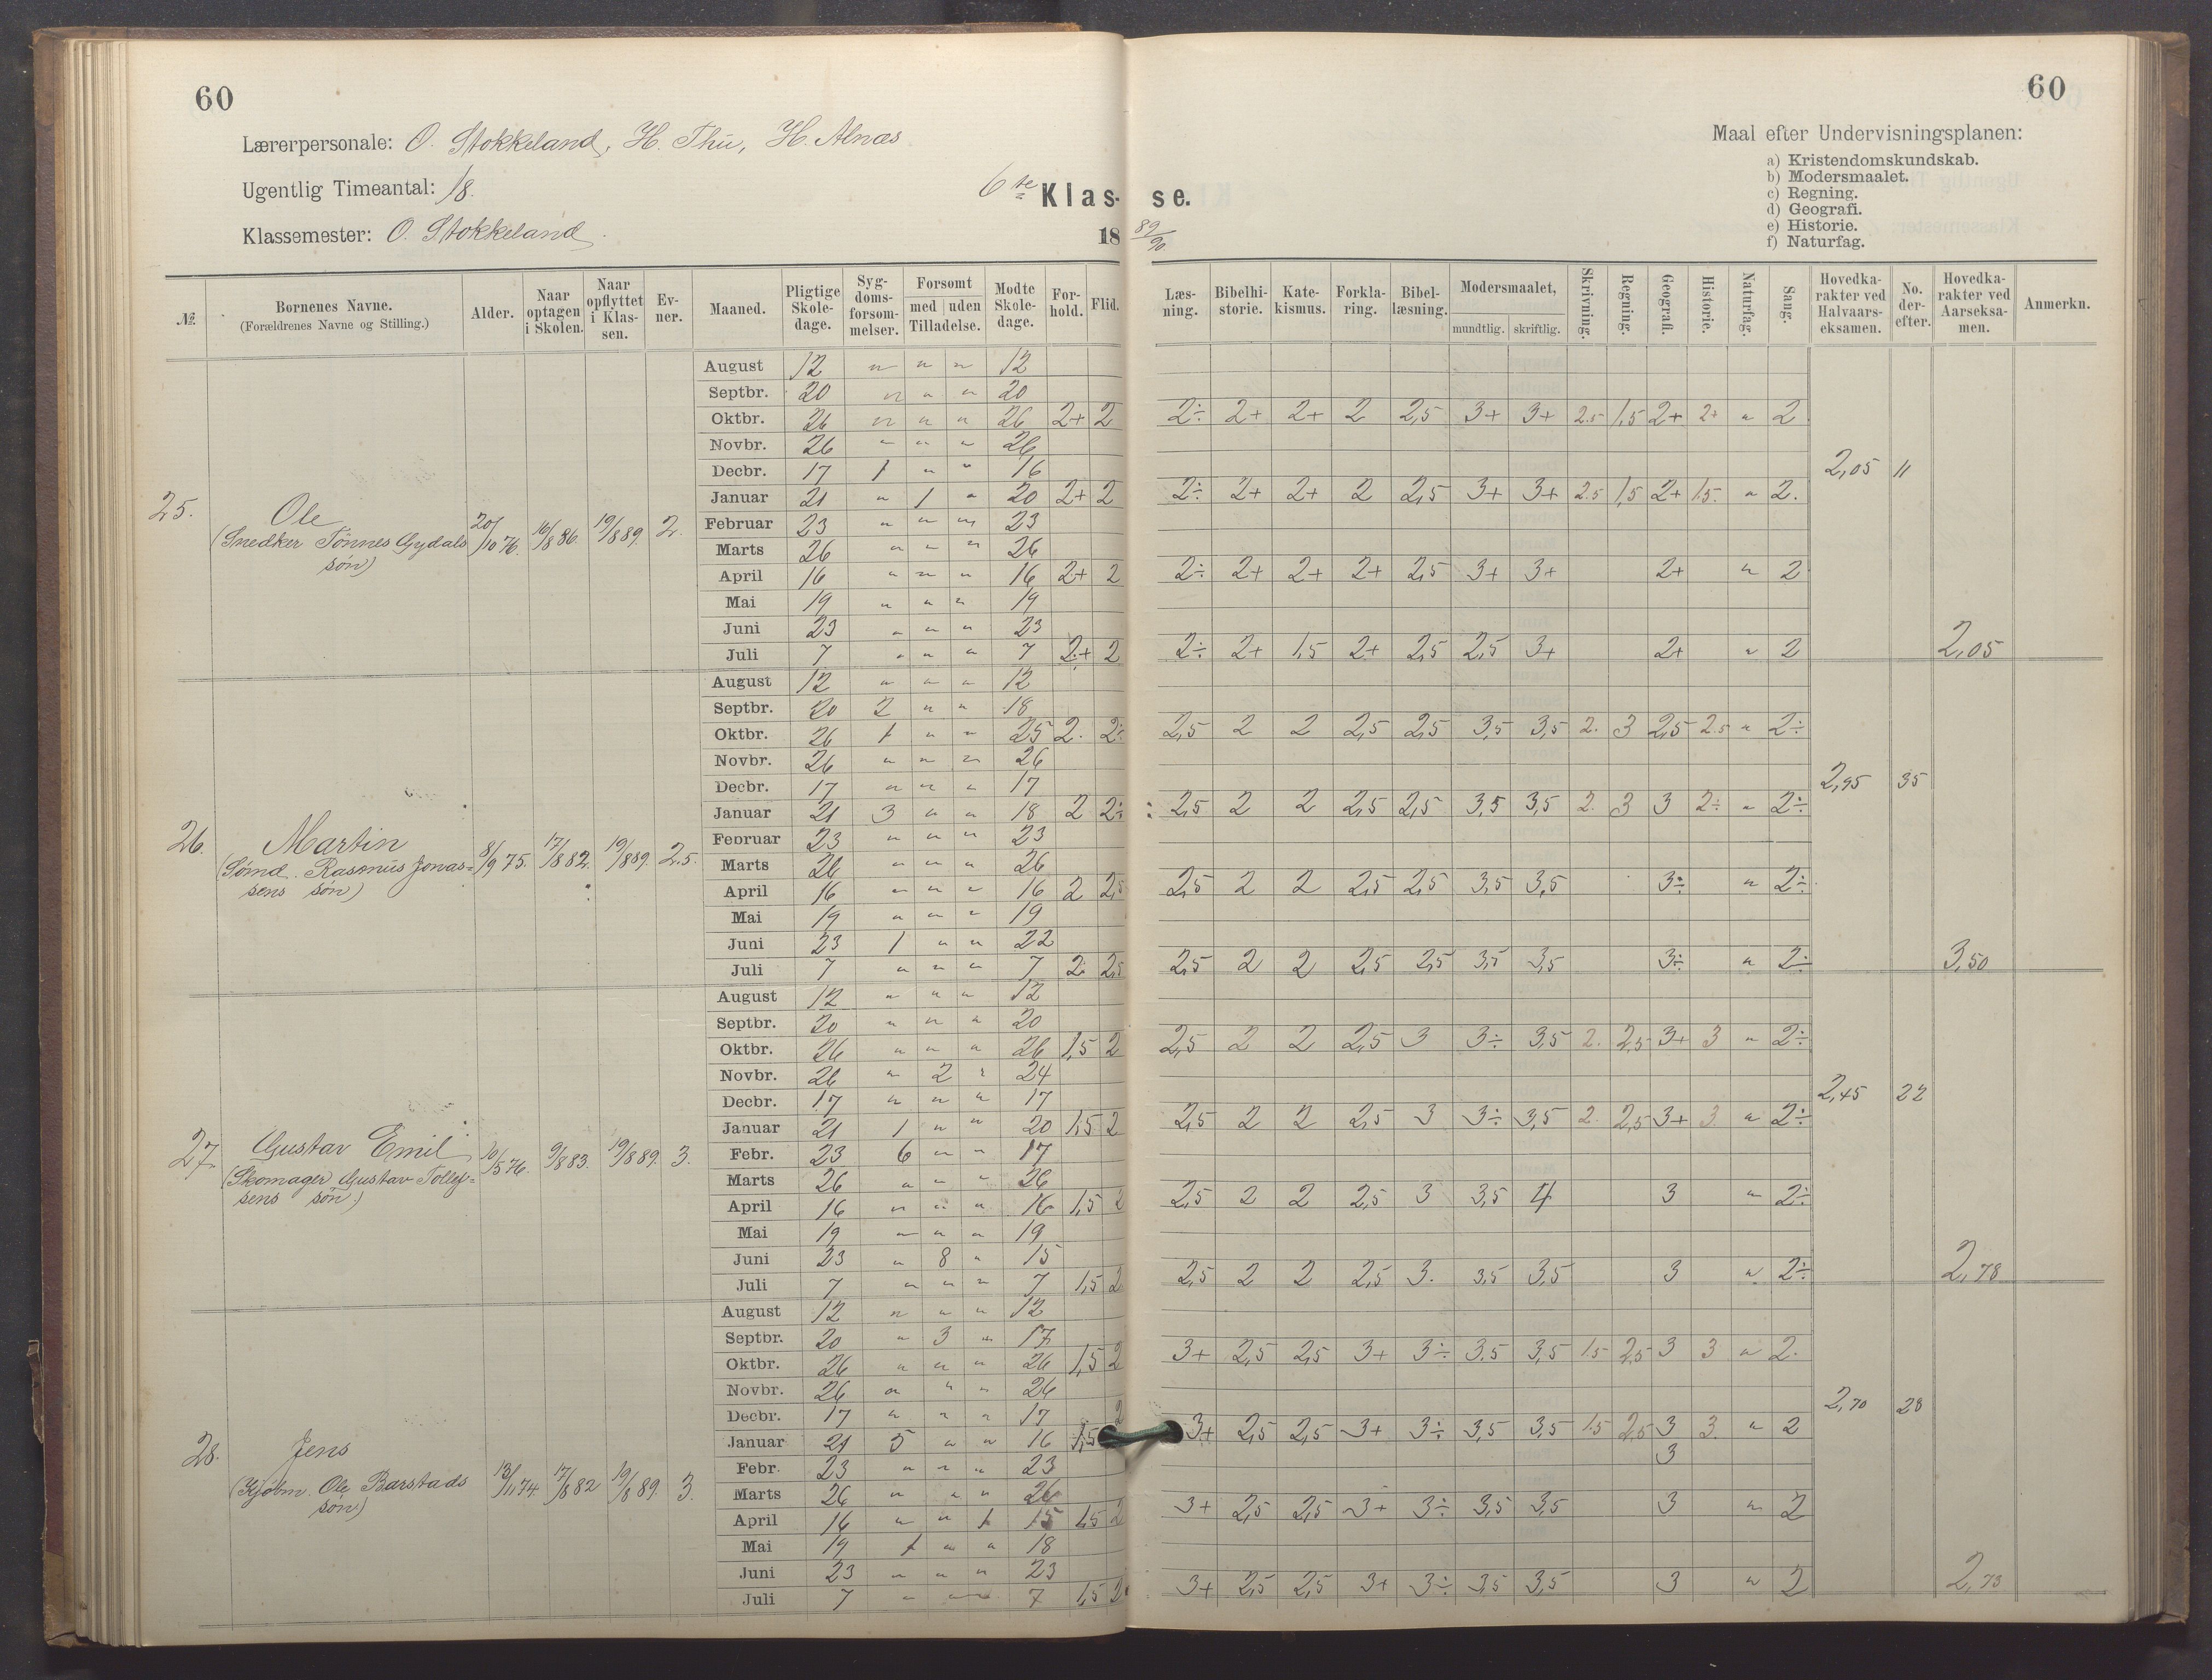 60
60
Lærerpersonale: O. Stokkeland, H. Thu, H. Alnæs
Ugentlig Timeantal: 18.
Klassemester: O. Stokkeland.
6te Klas- se.
18 89/90
Maal efter Undervisningsplanen:
a) Kristendomskundskab.
b) Modersmaalet.
c) Regning.
d) Geografi.
e) Historie.
f) Naturfag.
№. Børnenes Navne. (Forældrenes Navne og Stilling.) Alder. Naar optagen i Skolen. Naar opflyttet i Klassen. Evner. Maaned. Pligtige Skoledage. Sygdomsforsømmelser. Forsømt med uden Tilladelse. Mødte Skoledage. Forhold. Flid. Læsning. Bibelhistorie. Katekismus. Forklaring. Bibellæsning. Modersmaalet, mundtlig. skriftlig. Skrivning. Regning. Geografi. Historie. Naturfag. Sang. Hovedkarakter ved Halvaarseksamen. No. derefter. Hovedkarakter ved Aarseksamen. Anmerkn.
25. Ole (Snedker Tönnes Gydals søn) 20/10 76. 16/8 86. 19/8 89. 2.
August 12 " " " 12
Septbr. 20 " " " 20
Oktbr. 26 " " " 26 2+ 2 2÷ 2+ 2+ 2 2,5 3+ 3+ 2.5 1,5 2+ 2+ " 2
Novbr. 26 " " " 26
Decbr. 17 1 " " 16 2,05 11
Januar 21 " 1 " 20 2+ 2 2÷ 2+ 2+ 2 2,5 3+ 3+ 2.5 1,5 2+ 1.5. " 2.
Februar 23 " " " 23
Marts 26 " " " 26
April 16 " " " 16 2+ 2 2÷ 2+ 2+ 2+ 2,5 3+ 3+ 2+ " 2
Mai 19 " " " 19
Juni 23 " " " 23
Juli 7 " " " 7 2+ 2 2÷ 2+ 1,5 2+ 2,5 2,5 3+ 2+ " 2 2,05
26. Martin (Sømd. Rasmus Jonas= sens søn) 8/9 75. 17/8 82. 19/8 89. 2.5.
August 12 " " " 12
Septbr. 20 2 " " 18
Oktbr. 26 1 " " 25 2. 2÷ 2,5 2 2 2,5 2,5 3,5 3,5 2. 3 2,5 2.5 " 2÷
Novbr. 26 " " " 26
Decbr. 17 " " " 17 2,95 35
Januar 21 3 " " 18 2 2÷ 2,5 2 2 2,5 2,5 3,5 3,5 2. 3 3 2÷ " 2÷
Februar 23 " " " 23
Marts 26 " " " 26
April 16 " " " 16 2 2,5 2,5 2 2 2,5 2,5 3,5 3,5 3÷ " 2÷
Mai 19 " " " 19
Juni 23 1 " " 22
Juli 7 " " " 7 2 2,5 2,5 2 2 2,5 2,5 3,5 3,5 3÷ " 2÷ 3,50
27. Gustav Emil (Skomager Gustav Tollef= sens søn.) 10/5 76. 9/8 83. 19/8 89. 3.
August 12 " " " 12
Septbr. 20 " " " 20
Oktbr. 26 " " " 26 1,5 2 2,5 2 2 2,5 3 3÷ 3,5 2. 2,5 3+ 3 " 2÷
Novbr. 26 " 2 " 24
Decbr. 17 " " " 17 2,45 22
Januar 21 1 " " 20 1,5 2 2,5 2 2 2,5 3 3÷ 3,5 2. 2,5 3+ 3. " 2÷
Febr. 23 6 " " 17
Marts 26 " " " 26
April 16 " " " 16 1,5 2 2,5 2 2 2,5 3 3,5 4 3 " 2÷
Mai 19 " " " 19
Juni 23 " 8 " 15
Juli 7 " " " 7 1,5 2 2,5 2 2 2,5 3. 3,5 3,5 3 " 2÷ 2,78
28. Jens (Kjøbm. Ole Barstads søn) 13/11 74 17/8 82 19/8 89. 3.
August 12 " " " 12
Septbr. 20 " 3 " 17
Oktbr. 26 " " " 26 1,5 2 3+ 2,5 2,5 3+ 3÷ 3.5 3,5 1.5 2,5 3 3 " 2.
Novbr. 26 " " " 26
Decbr. 17 " " " 17 2 2,70 28
Januar 21 5 " " 16 1,5 3+ 2,5 2,5 3+ 3÷ 3,5 3,5 1.5 2,5 3 3. " 2
Febr. 23 " " " 23 3
Marts 26 " " " 26
April 16 " " 1 15 1,5 2 3+ 2,5 2,5 3+ 3÷ 3,5 3,5 3 " 2
Mai 19 1 " " 18
Juni 23 " " " 23
Juli 7 " " " 7 1,5 2 3+ 2,5 2,5 3+ 3÷ 3,5 3,5 3 " 2 2,73